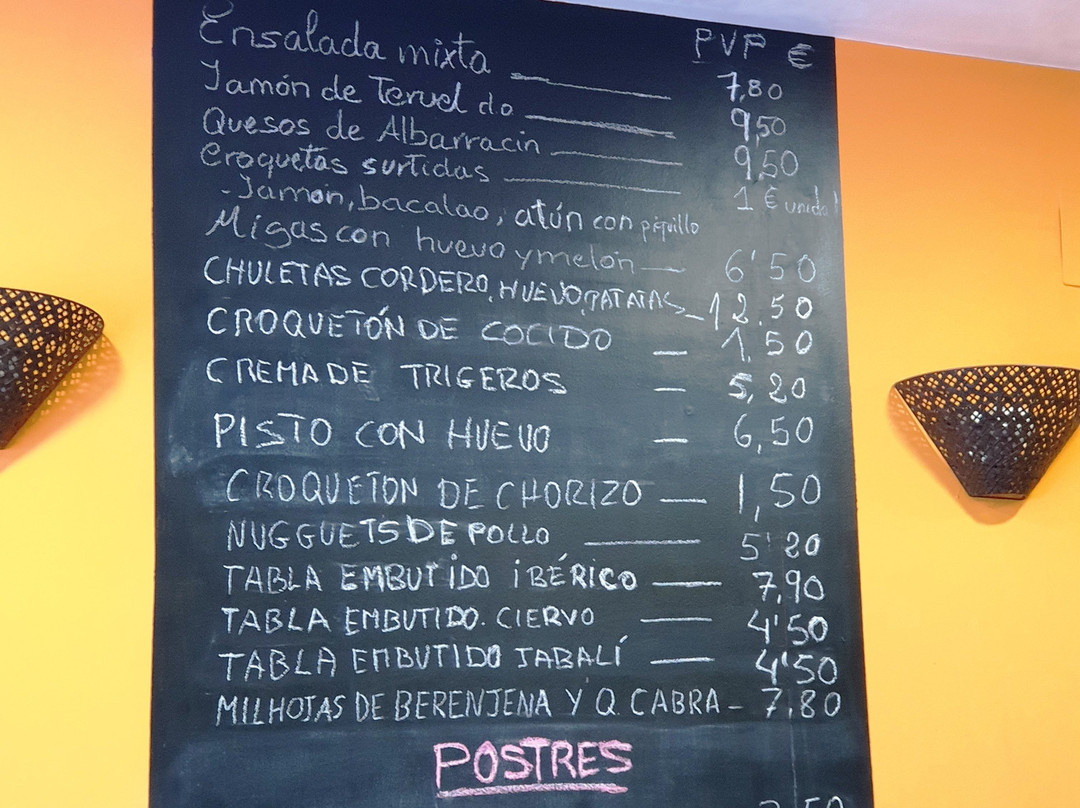 PVP €
Ensalada mixta 7,80
Jamón de Teruel d.o 9,50
Quesos de Albarracin 9,50
Croquetas surtidas 1 € unidad
- Jamón, bacalao, atún con piquillo
Migas con huevo y melón 6'50
CHULETAS CORDERO, HUEVO, PATATAS 12,50
CROQUETÓN DE COCIDO 1,50
CREMA DE TRIGEROS 5,20
PISTO CON HUEVO 6,50
CROQUETON DE CHORIZO 1,50
NUGGUETS DE POLLO 5'20
TABLA EMBUTIDO IBÉRICO 7,90
TABLA EMBUTIDO. CIERVO 4'50
TABLA EMBUTIDO JABALÍ 4'50
MILHOJAS DE BERENJENA Y Q. CABRA - 7,80
POSTRES